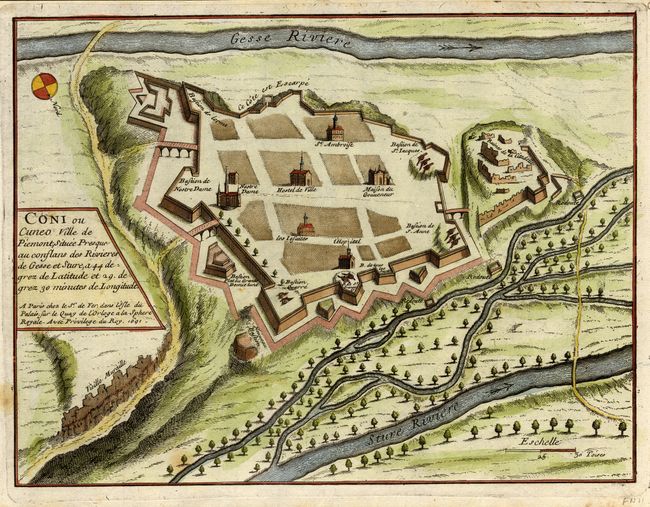 Gesse Riviere
Nord
Ce Côté est Escarpé
St. Ambroise
Bastion de
St. Iacques
Bastion de
Nostre Dame
Nostre
Dame
Hostel de Ville
Maison du
Gouverneur
Bastion de
St. Anne
les Iesuites
l'Hospital
Bastion
Bastion
Redoute
CÔNI ou
CUNEO Ville de
Piemont, Située Presque
au conflans des Rivieres
de Gesse et Sture, a 44 de-
grez de Lattitude et 29. de
grez 30 minutes de Longitude
A Paris chez le Sr. de Fer, dans l'Isle du
Palais, sur le Quay de l'Orloge a la Sphere
Royale. Avec Privilege du Roy. 1691
Vieille Muraille
Sture Riviere
Eschelle
25 50 Toises